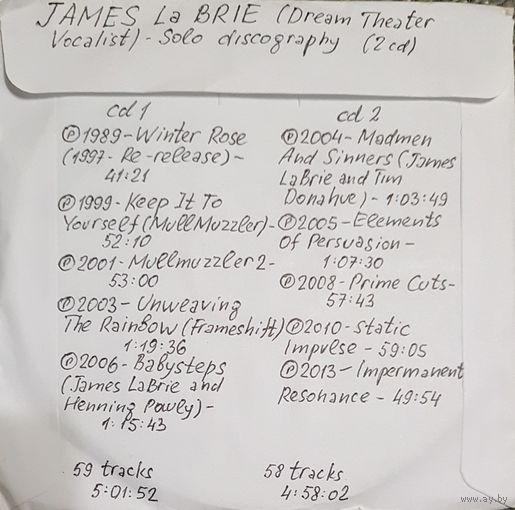 JAMES La BRIE (Dream Theater
Vocalist) - Solo discography (2 cd)
cd 1
℗1989-Winter Rose
(1997-Re-release)-
41:21
℗1999-Keep It To
Yourself (MullMuzzler)-
52:10
℗2001-Mullmuzzler 2-
53:00
℗2003-Unweaving
The Rainbow (Frameshift)
1:19:36
℗2006-Babysteps
(James LaBrie and
Henning Pawly)-
1:15:43
59 tracks
5:01:52
cd 2
℗2004-Madmen
And Sinners (James
LaBrie and Tim
Donahue)-1:03:49
℗2005-Elements
Of Persuasion-
1:07:30
℗2008-Prime Cuts-
57:43
℗2010-Static
Impulse-59:05
℗2013-Impermanent
Resonance-49:54
58 tracks
4:58:02
www.ay.by